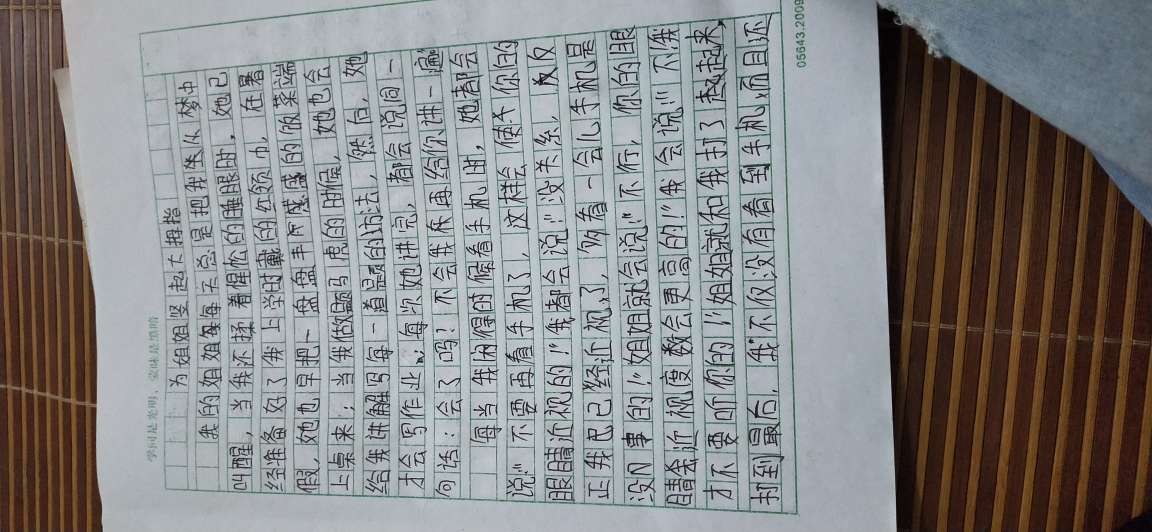 学问是光明，蒙昧是黑暗
为姐姐竖起大拇指
我的姐姐每天总是把我从梦中
叫醒，当我还揉着惺忪的睡眼时，她已
经准备好了我上学时戴的红领巾，在暑
假，她也早把一盘盘丰盛的饭菜端
上桌来；当我做题马虎的时候，她也会
给我讲解写每一道题的方法，然后，她
才会写作业；每次她讲完，都会说同一
句话：会了吗？不会我来再给你讲一遍
每当我闲得时候看手机时，她都会
说：“不要再看手机了，这样会使不你的
眼睛近视的！”我都会说：“没关系，反
正我已已经近视了，够看一会儿手机是
没事的！”姐姐就会说：“不行，你的眼
睛会近视度数会更高的！”我会说：“不我
才不要听你的！”姐姐就和我打了起来，
打到最后，我不仅没有看到手机，而且还
05643.2009